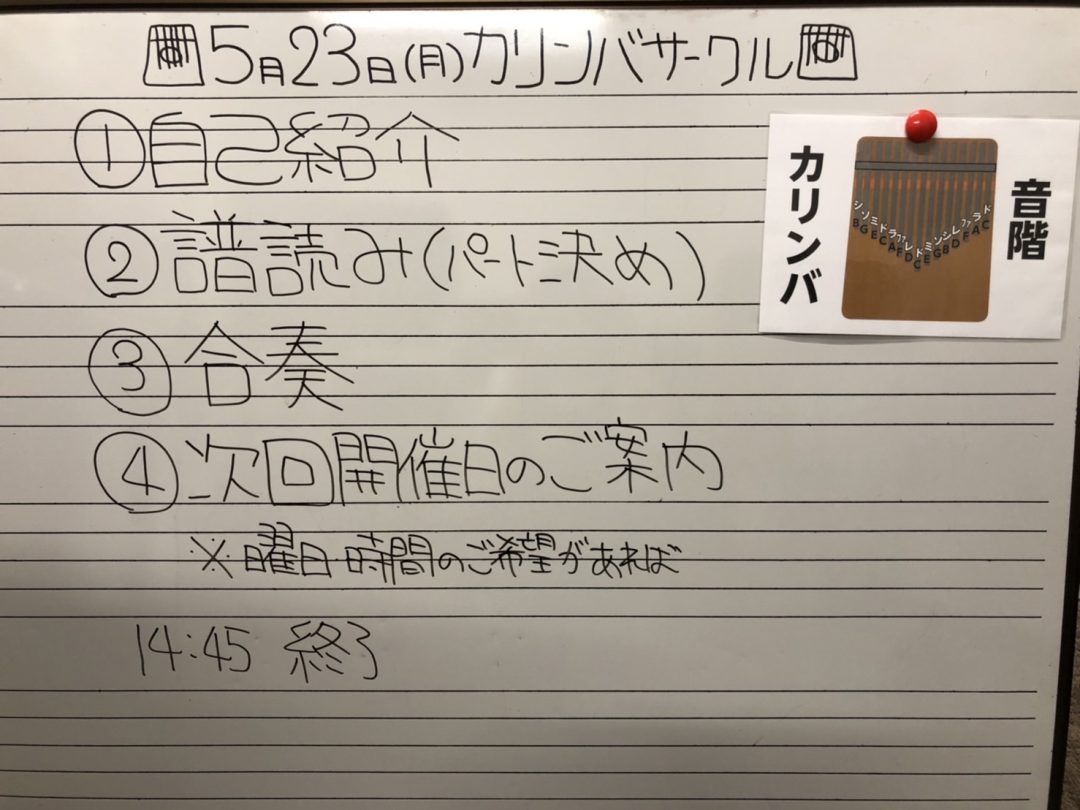 5月23日(月)カリンバサークル
①自己紹介
②譜読み(パート決め)
③合奏
④次回開催日のご案内
※曜日・時間のご希望があれば
14:45 終了
カリンバ
音階
シソミドラファレドミソシレファラド
BGECAFDCEGBDFAC